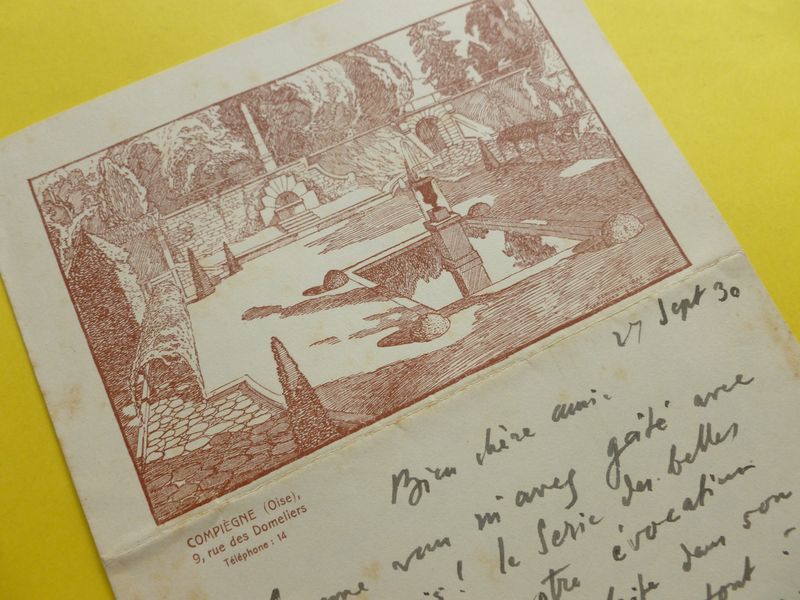 COMPIÈGNE (Oise),
9, rue des Domeliers
Téléphone : 14
27 Sept 30
Bien chère amie
vous m'avez gâté avec
! la Série des belles
évocation
dans son
tout